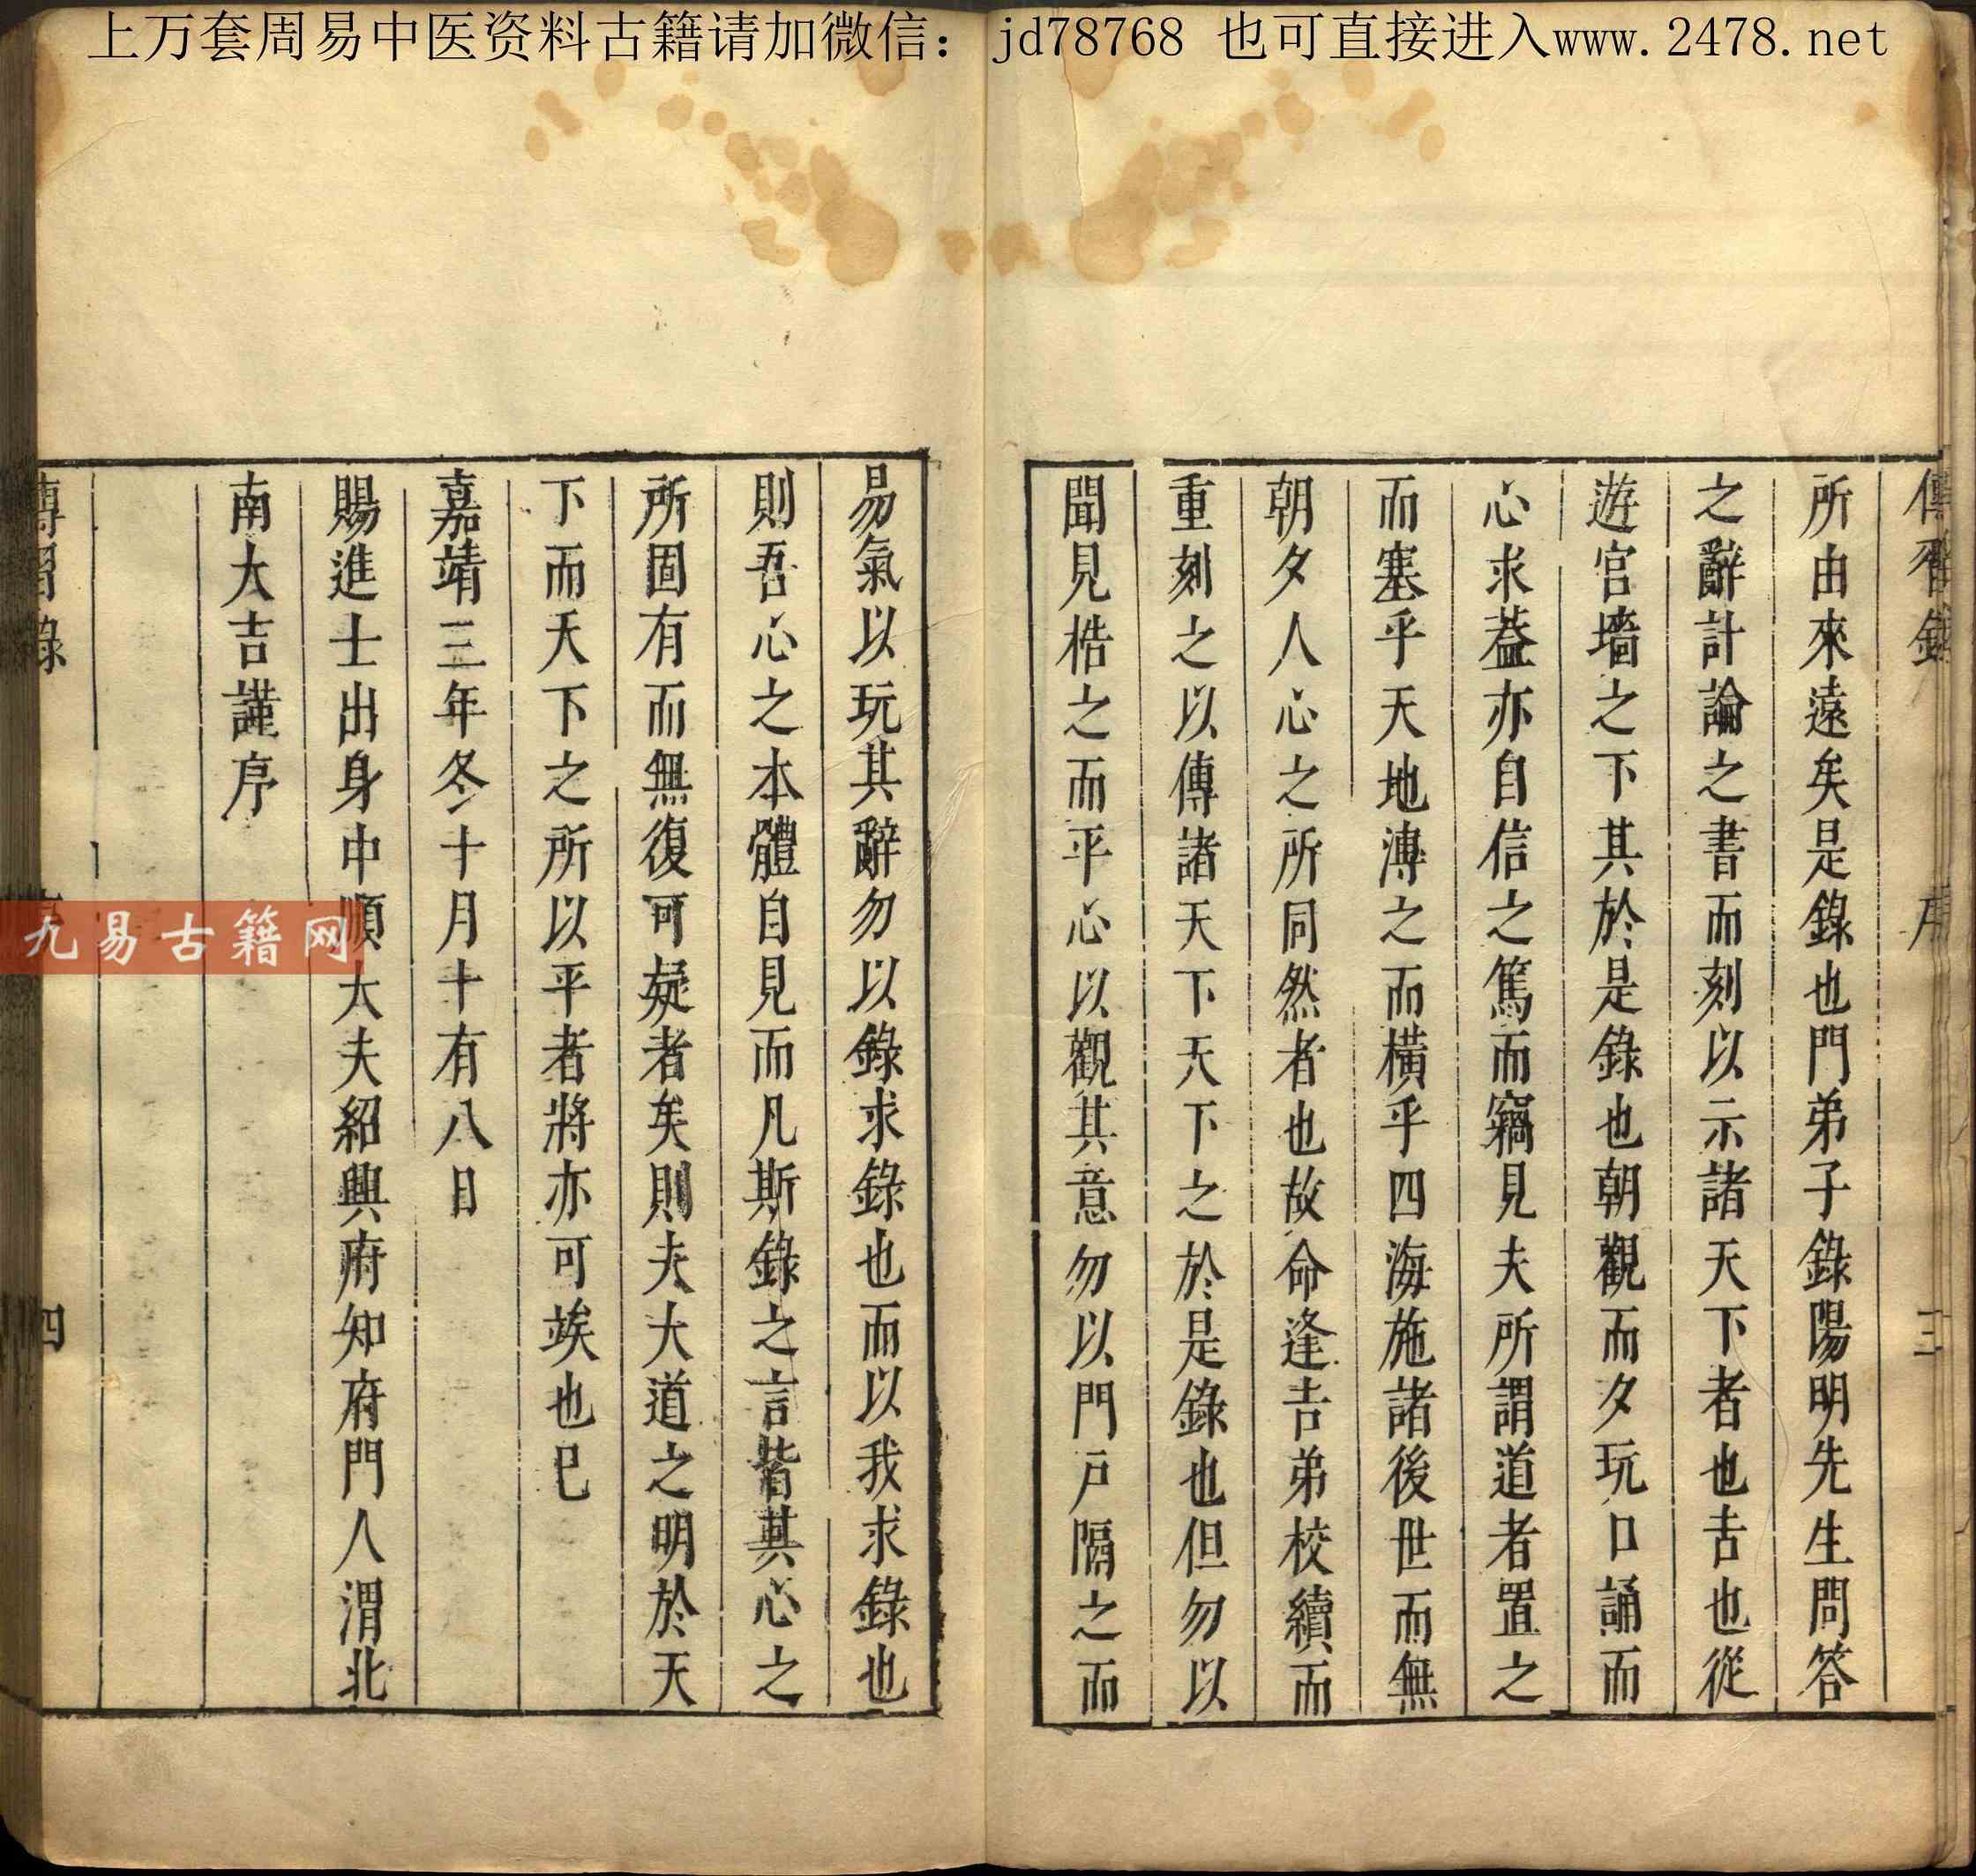 上万套周易中医资料古籍请加微信：jd78768 也可直接进入www.2478.net
傳習錄 序 三
所由來遠矣是錄也門弟子錄陽明先生問答
之辭討論之書而刻以示諸天下者也吉也從
遊宮墻之下其於是錄也朝觀而夕玩口誦而
心求葢亦自信之篤而竊見夫所謂道者置之
而塞乎天地溥之而橫乎四海施諸後世而無
朝夕人心之所同然者也故命逢吉弟校續而
重刻之以傳諸天下天下之於是錄也但勿以
聞見梏之而平心以觀其意勿以門戶隔之而
易氣以玩其辭勿以錄求錄也而以我求錄也
則吾心之本體自見而凡斯錄之言皆其心之
所固有而無復可疑者矣則夫大道之明於天
下而天下之所以平者將亦可竢也巳
嘉靖三年冬十月十有八日
賜進士出身中順大夫紹興府知府門人渭北
南大吉謹序
傳習錄 四
九易古籍网